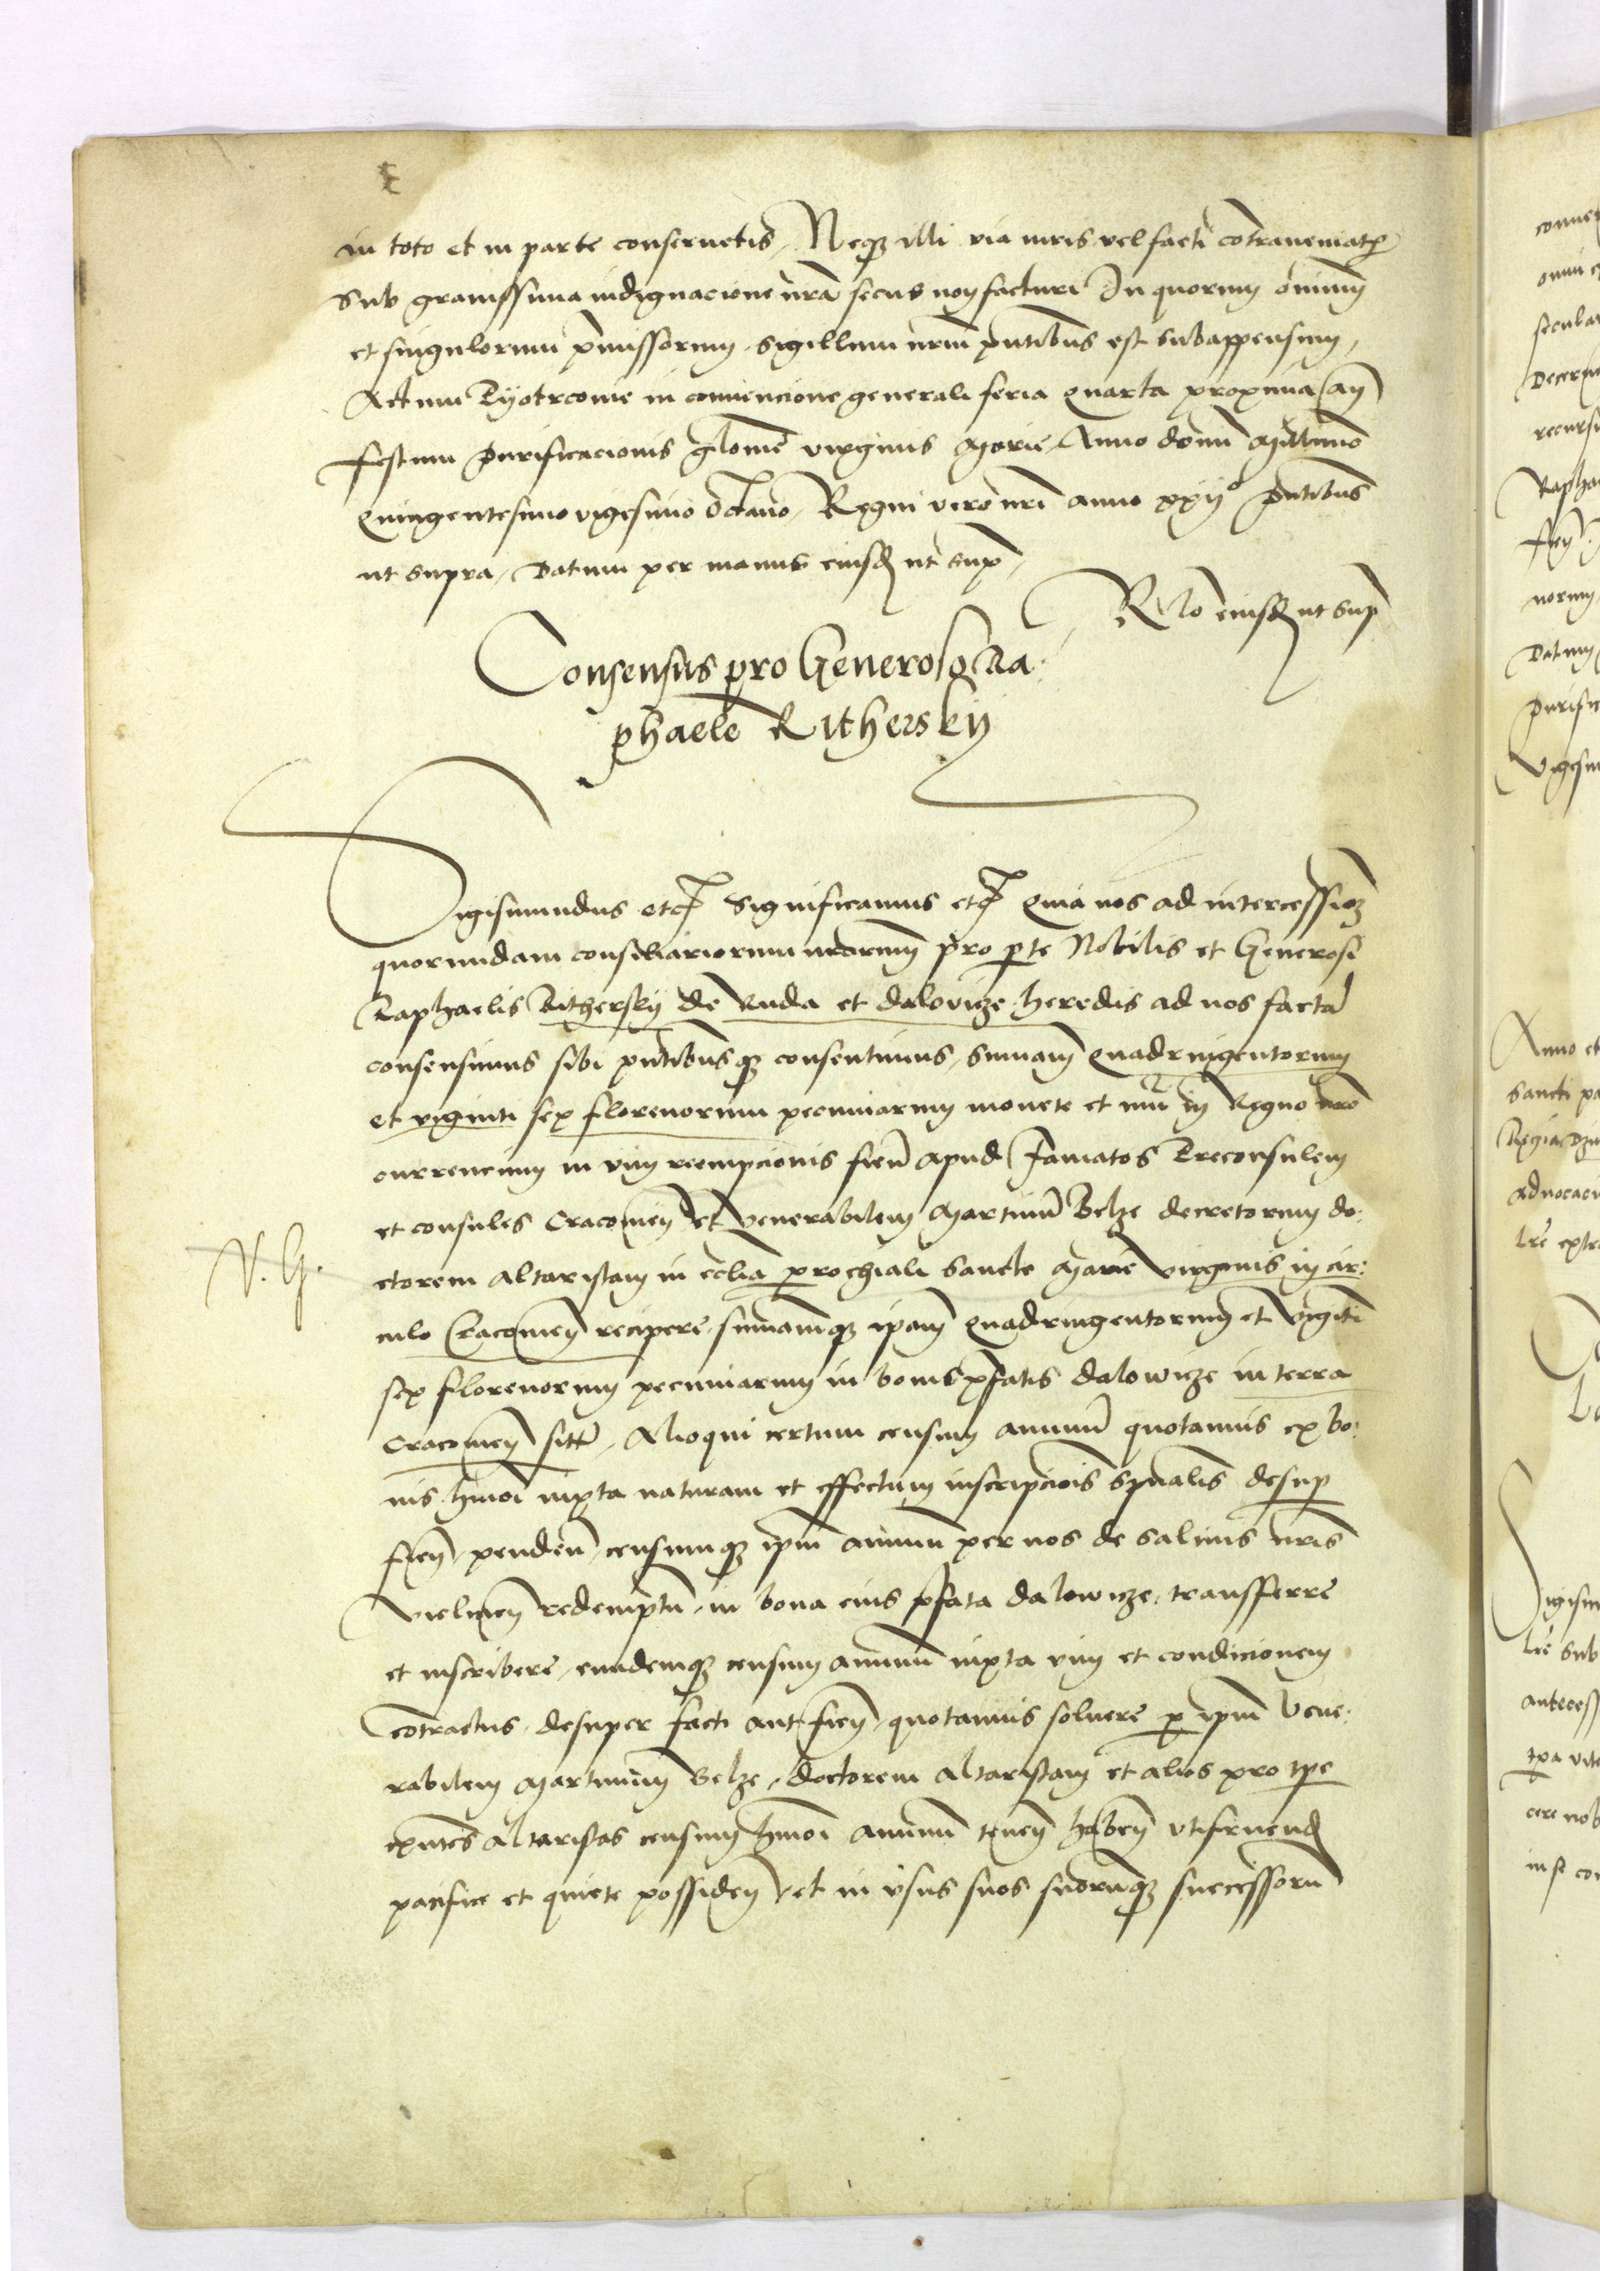 in toto et in parte conseruetis, Neqz illi via iuris vel facti cotraueniatr
Sub grauissima indignacione nra secus non facturi In quorum omnium
et singulorum pmissorum, Sigillum nrum pntibus est subappensum,
Actum Pyotrcouie in conuencione generali feria quarta proxima an
festum Purificacionis gloriose virginis Marie, Anno domini Millimo
Quingentesimo vigesimo octauo, Regni vero nri anno xxij° pntibus
ut supra, Datum per manus eiusd ut sup,
Rlo eiusd ut sup
Consensus pro Generoso Ra
phaele Rithersky
Sigismundus etc Significamus etc Quia nos ad intercessioz
quorundam consiliariorum nrorum pro pte Nobilis et Generosi
Raphaelis Rithersky de Ruda et dalovicze heredis ad nos facta
consensimus sibi pntibusqz consentimus, summam Quadringentorum
et viginti sex florenorum pecuniarum monete et nuri in Regno nro
currencium in vim reempcionis fien apud famatos Preconsulem
et consules Cracouien et Venerabilem Martinu Belze decretorum do:
V. G.
ctorem altaristam in ecclia parochiali Sancte Marie Virginis in cir:
culo Cracouien recipere, summamqz ipam Quadringentorum et viginti
sex florenorum pecuniarum in bonis pfatis dalowicze in terra
Cracouien sitt, Alioqui certum censum annuu quotannis ex bo:
nis hmoi iuxta naturam et effectum inscripciois spualis desup
fien, penden, censumqz ipm annuu per nos de Salinis nris
Vielicien redemptu, in bona eius pfata dalowicze, transferre
et inscribere, eundemqz censum annuu iuxta vim et condicionem
cotractus, desuper facti aut fien, quotannis soluere p ipm Vene:
rabilem Martinum Belze, doctorem altaristam et alios pro tpe
exntes altaristas censum hmoi annuu tenen haben utifruend
pacifice et quiete possiden, et in vsus suos suorumqz successoru